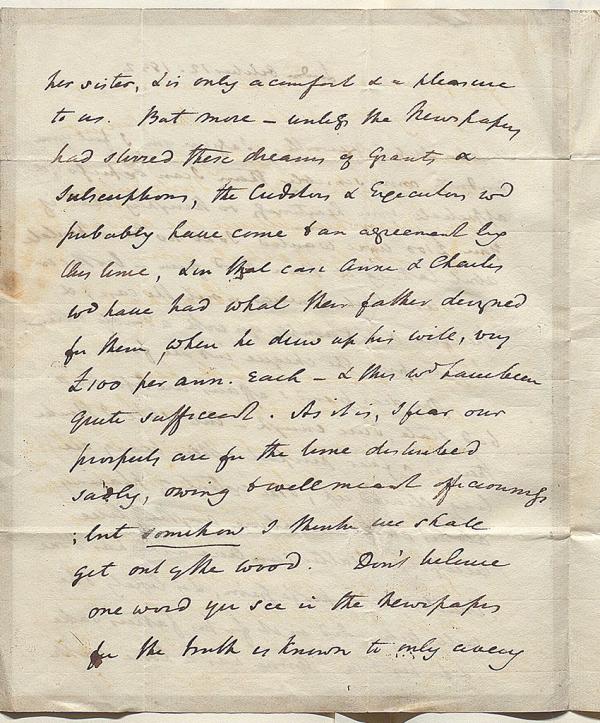 her sister, & is only a comfort & a pleasure
to us. But more – unless the Newspapers
had stirred these dreams of Grants &
Subscriptions, the Creditors & Executors wd
probably have come to an agreement by
this time, & in that case Anne & Charles
wd have had what their father designed
for them when he drew up his will, viz
£100 per ann. Each – & this wd have been
quite sufficient. As it is, I fear our
prospects are for the time disturbed
sadly, owing to well meant officiousness
; but somehow I think we shall
get out of the wood. Don't believe
one word you see in the Newspapers
for the truth is known to only a very